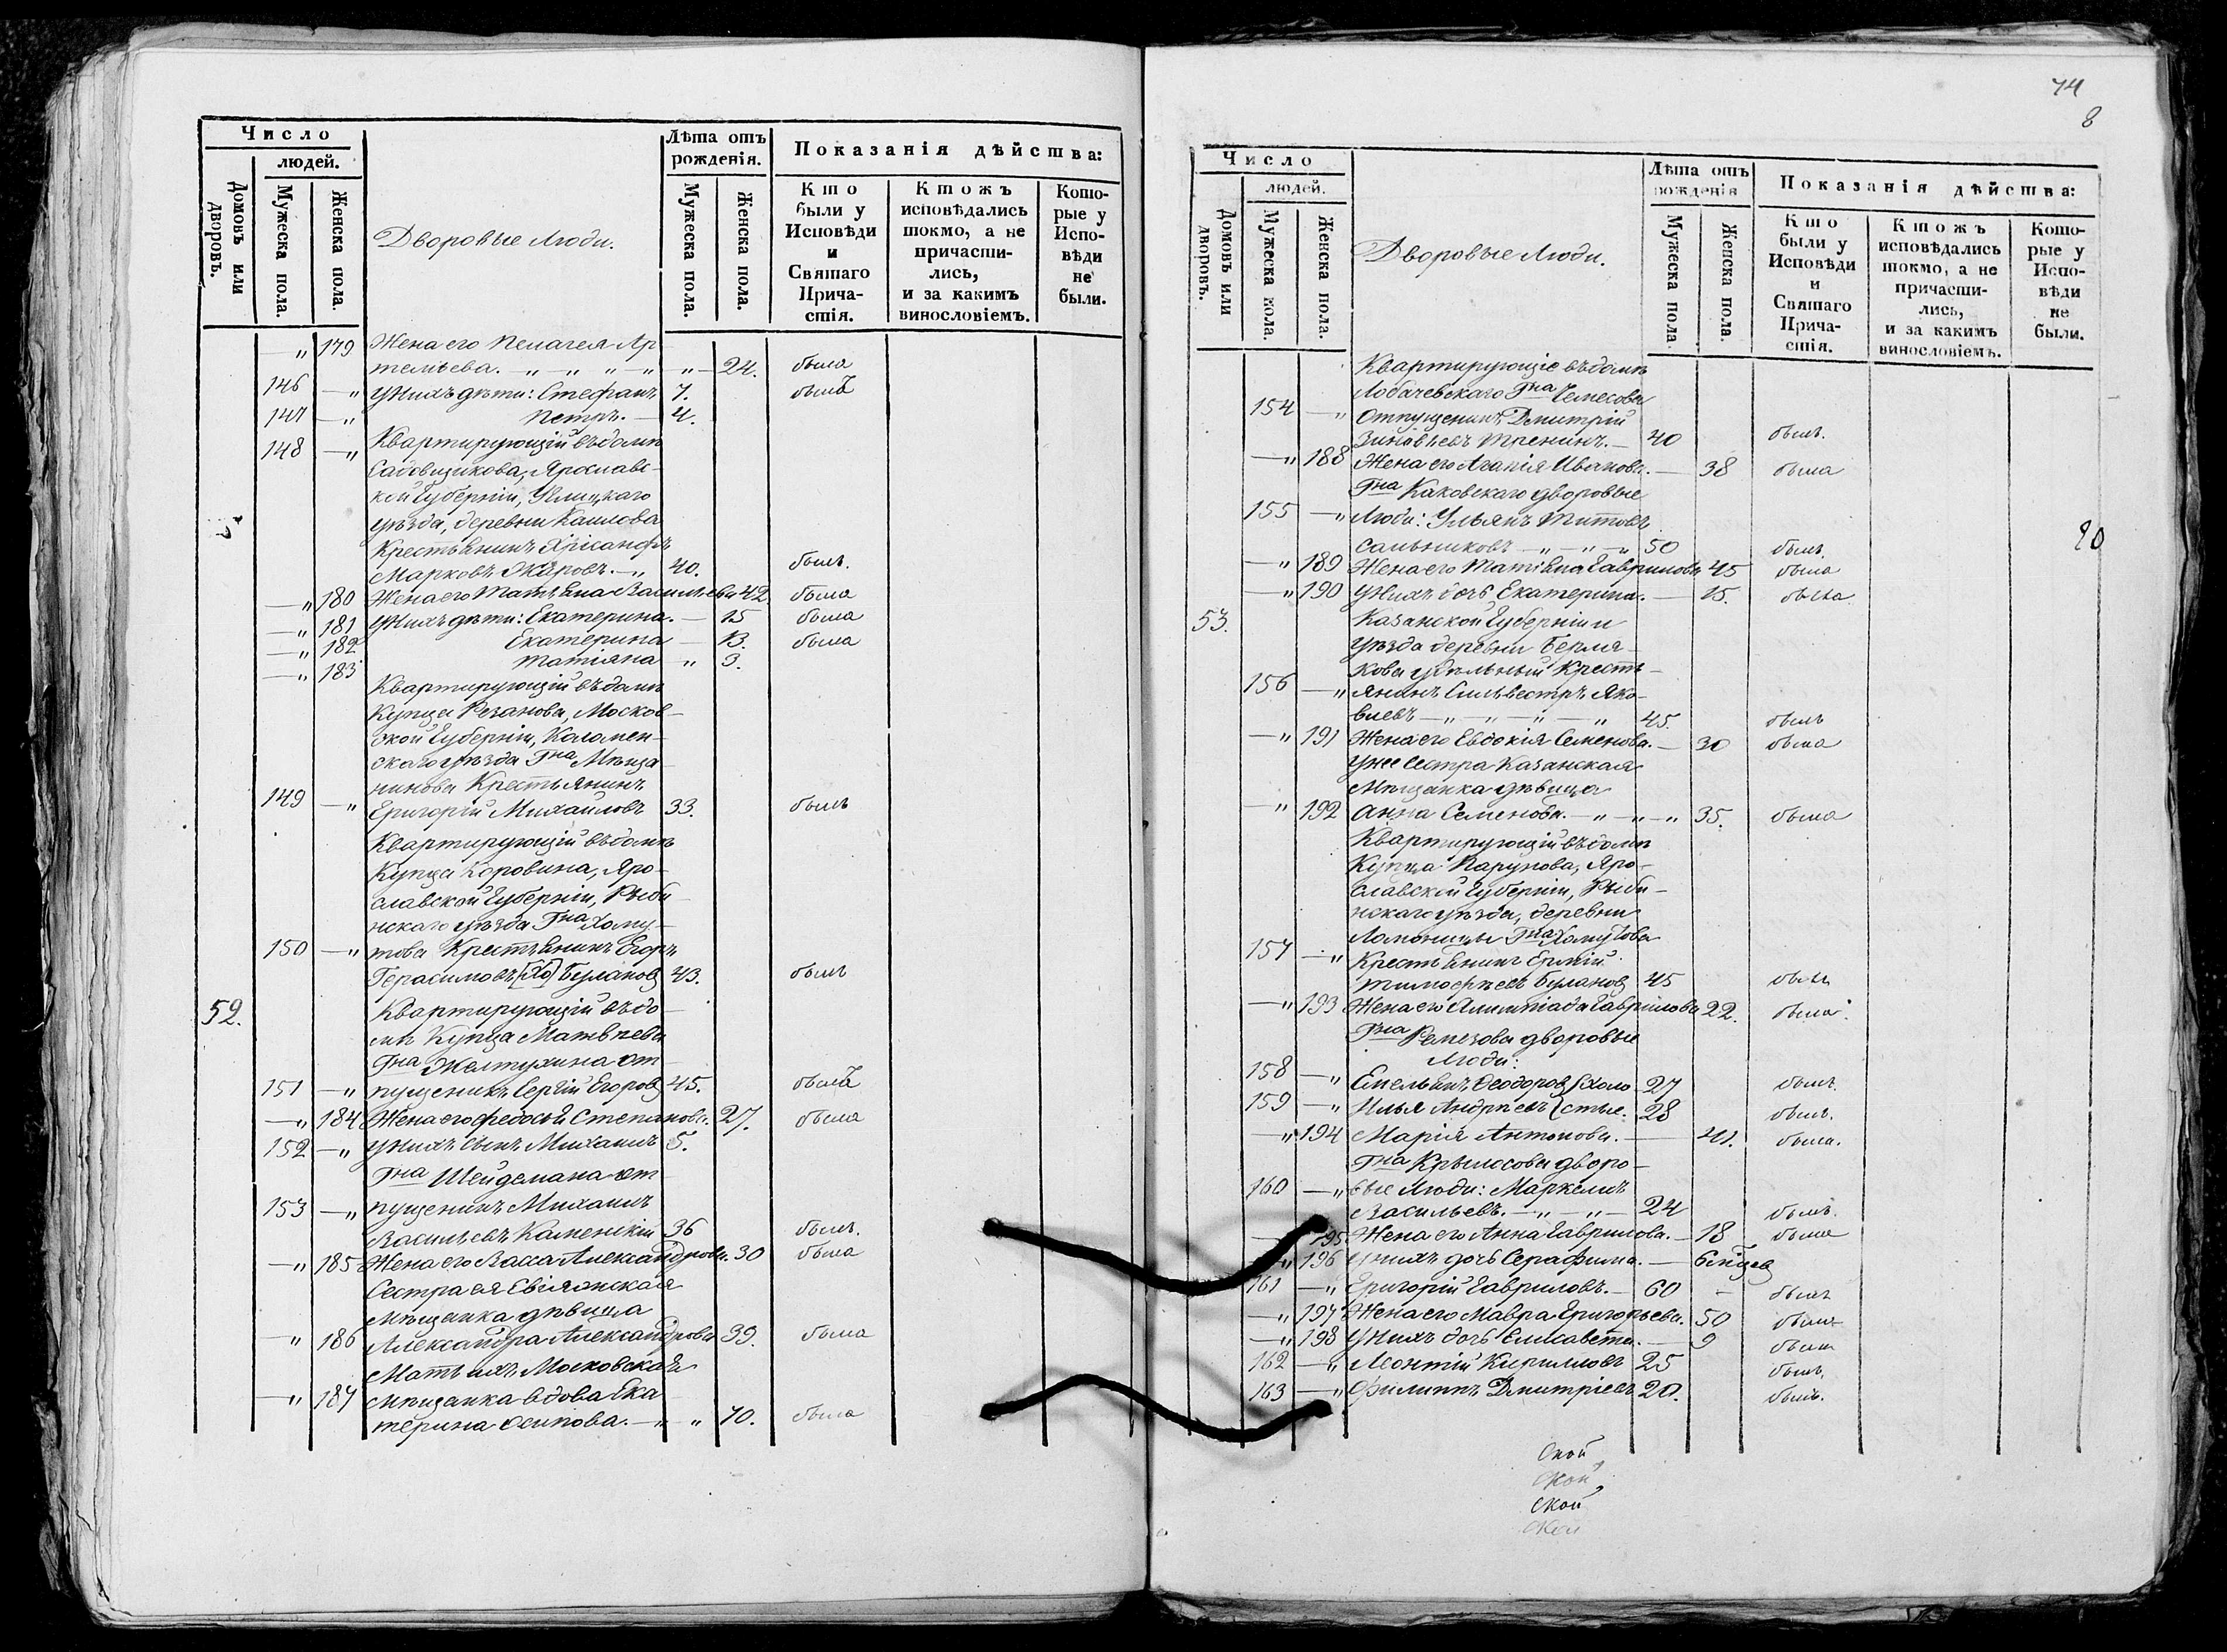 Число
людей.
Домовъ или дворовъ.
Мужеска пола.
Женска пола.
Дворовые Люди.
Лѣта отъ рожденія.
Мужеска пола.
Женска пола.
Показанія дѣйства:
Кто были у Исповѣди и Святаго Причастія.
Ктожъ исповѣдались токмо, а не причастились, и за какимъ винословіемъ.
Которые у Исповѣди не были.
„ 179 Жена его Пелагея Ар
темьева. — „ — „ — „ — „ „ — 24. была
146 — „ У нихъ дѣти: Стефанъ 7. былъ
147 — „ Петръ. — 4.
148 — „ Квартирующій въ домѣ
Садовщикова, Ярославс-
кой Губерніи, Углицкаго
уѣзда, деревни
Крестьянинъ Хрисанфъ
Марковъ — „ 40. былъ.
— „ 180 Жена его Татьяна Васильева 42. была
— „ 181 У нихъ дѣти: Екатерина. — 15 была
— „ 182. Екатерина — 13. была
— „ 183 Татіана „ 3.
Квартирующій въ домѣ
Купца Резанова, Москов-
ской Губерніи, Коломен-
скаго уѣзда Гна Мѣща
нинова Крестьянинъ
149 — „ Григорій Михайловъ 33. былъ
Квартирующій въ домѣ
Купца Коровина, Яро-
славской Губерніи, Рыби
нскаго уѣзда Гна Хому-
150 — „ това Крестьянинъ Егоръ
Герасимовъ [Хо] Булановъ 43. былъ
52. Квартирующій въ до
мѣ Купца Матвѣева
Гна Желтухина от
151 — „ пущеникъ Сергій Егоровъ 45. былъ
— „ 184 Жена его Федосья Степанова. 27. была
152 — „ У нихъ сынъ Михаилъ 5.
Гна Шейдемана от
153 — „ пущеникъ Михаилъ
Васильевъ Каменскій 36 былъ.
— „ 185 Жена его Васса Александрова. 30 была
Сестра ея Свіяжская
Мѣщанка дѣвица
— „ 186 Александра Александрова 39. была
Мать ихъ Московская
— „ 187 Мѣщанка вдова Ека
терина Осипова. — „ — „ 70. была
74
8
Число
людей.
Домовъ или дворовъ.
Мужеска пола.
Женска пола.
Дворовые Люди.
Лѣта отъ рожденія
Мужеска пола.
Женска пола.
Показанія дѣйства:
Кто были у Исповѣди и Святаго Причастія.
Ктожъ исповѣдались токмо, а не причастились, и за какимъ винословіемъ.
Которые у Исповѣди не были.
Квартирующіе въ домѣ
Лобачевскаго Гна Чемесова
154 — „ Отпущеникъ Дмитрій
Зиновьевъ Тренинъ. — 40 былъ.
— „ 188 Жена его Агапія Иванова. — 38 была
Гна Каковскаго дворовые
155 — „ Люди: Ульянъ Титовъ
Сальниковъ — „ — „ — „ 50 былъ.
20
— „ 189 Жена его Татіана Гаврилова 45 была
— „ 190 У нихъ дочь Екатерина. — 15. была
53. Казанской Губерніи и
уѣзда деревни Берля-
кова удѣльный Кресть-
156 — „ янинъ Сильвестръ Яко-
влевъ — „ — „ — „ — „ 45. былъ
— „ 191 Жена его Евдокія Семенова. — 30 была
У нее Сестра Казанская
Мѣщанка дѣвица
„ 192 Анна Семенова. — „ — „ — „ 35. была
Квартирующій въ домѣ
Купца Парунова, Яро-
славской Губерніи, Рыби-
нскаго уѣзда, деревни
Гна Хомутова
157 — „ Крестьянинъ Ермій
Тимофеевъ Булановъ 45 былъ
— „ 193 Жена его Олимпіада Гаврилова 22. была.
Гна Ремезова дворовые
Люди:
158 — „ Емельянъ Феодоровъ { холо 27 былъ.
159 — „ Илья Андреевъ { стые. 28 былъ.
— „ 194 Марія Антонова. — 41. была.
Гна Крылосова дворо-
160 — „ вые Люди: Маркелъ
Васильевъ. — „ — „ — 24 былъ.
— 195 Жена его Анна Гаврилова. — 18 была
„ 196 У нихъ дочь Серафима. — 6 мѣсяцевъ
161 — „ Григорій Гавриловъ. — 60 - былъ
— „ 197 Жена его Мавра Григорьева. 50 была
— „ 198 У нихъ дочь Елисавета. — 9 была
162 — „ Леонтій Кирилловъ 25 былъ.
163 — „ Филиппъ Дмитріевъ 20. былъ.
Ской
Ской
Ской
Ской